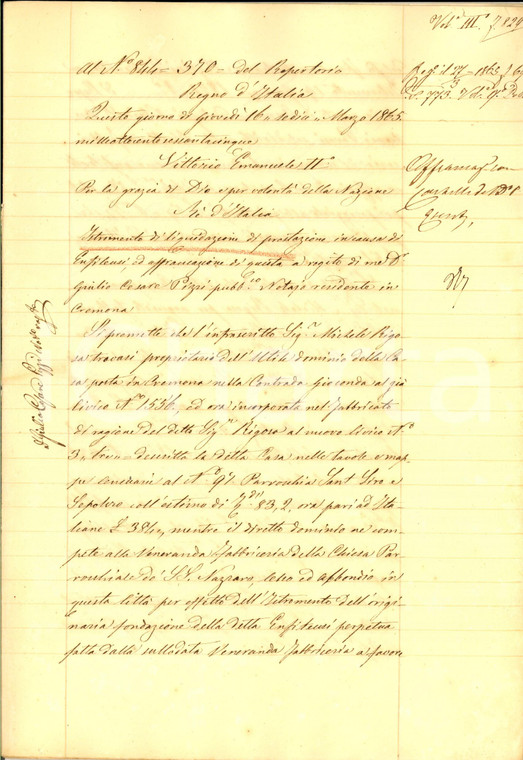 Vol. III. f. 820
Al N.° 844 - 370 - del Repertorio
Regno d'Italia
Questo giorno di Giovedì 16 - sedici - Marzo 1865
milleottocentosessantacinque
Vittorio Emanuele II°
Per la grazia di Dio e per volontà della Nazione
Re d'Italia
Istromento di liquidazione di prestazione in causa di
Enfiteusi, ed affrancazione di questa a rogito di me D.r
Giulio Cesare Pizzi pubb.co Notajo residente in
Cremona
Si premette che l'infrascritto Sig.r Michele Rigo
sa trovasi proprietario dell'Utile dominio della Ca
sa posta in Cremona nella Contrada Gioconda al già
civico N.° 1556, ed ora incorporata nel fabbricato
di ragione del detto Sig.r Rigosa al nuovo civico N.°
3 - tre - descritta detta Casa nelle tavole e map
pe censuarie al N.° 91 Parrocchia Sant
Sepolcro coll'estimo di 83,2, ora pari ad Ita
liane £ 384, mentre il diretto dominio ne com
pete alla Veneranda Fabbriceria della Chiesa Par
rocchiale de' S.S. Nazaro, Celso ed Abbondio in
questa Città per effetto dell'Istromento dell'origi
naria fondazione della detta Enfiteusi perpetua
fatta dalla sullodata Veneranda Fabbriceria a favore